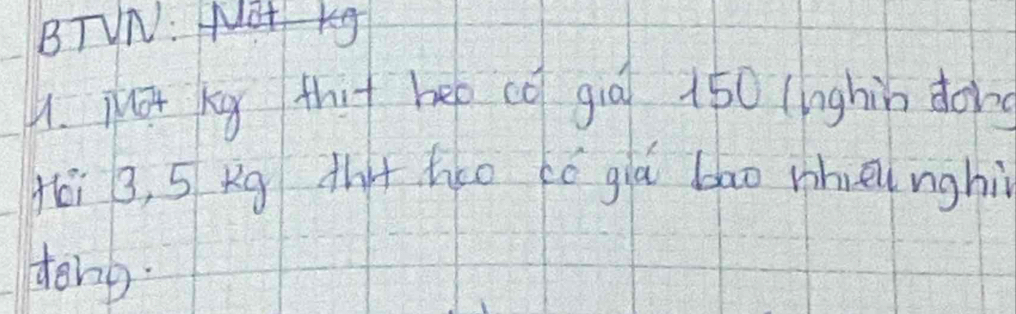 BTVN: Một kg
1. Một kg thịt heo có giá 150 (nghìn đồng
Hỏi 3,5 kg thịt heo có giá bao nhiêu nghìn
đồng.